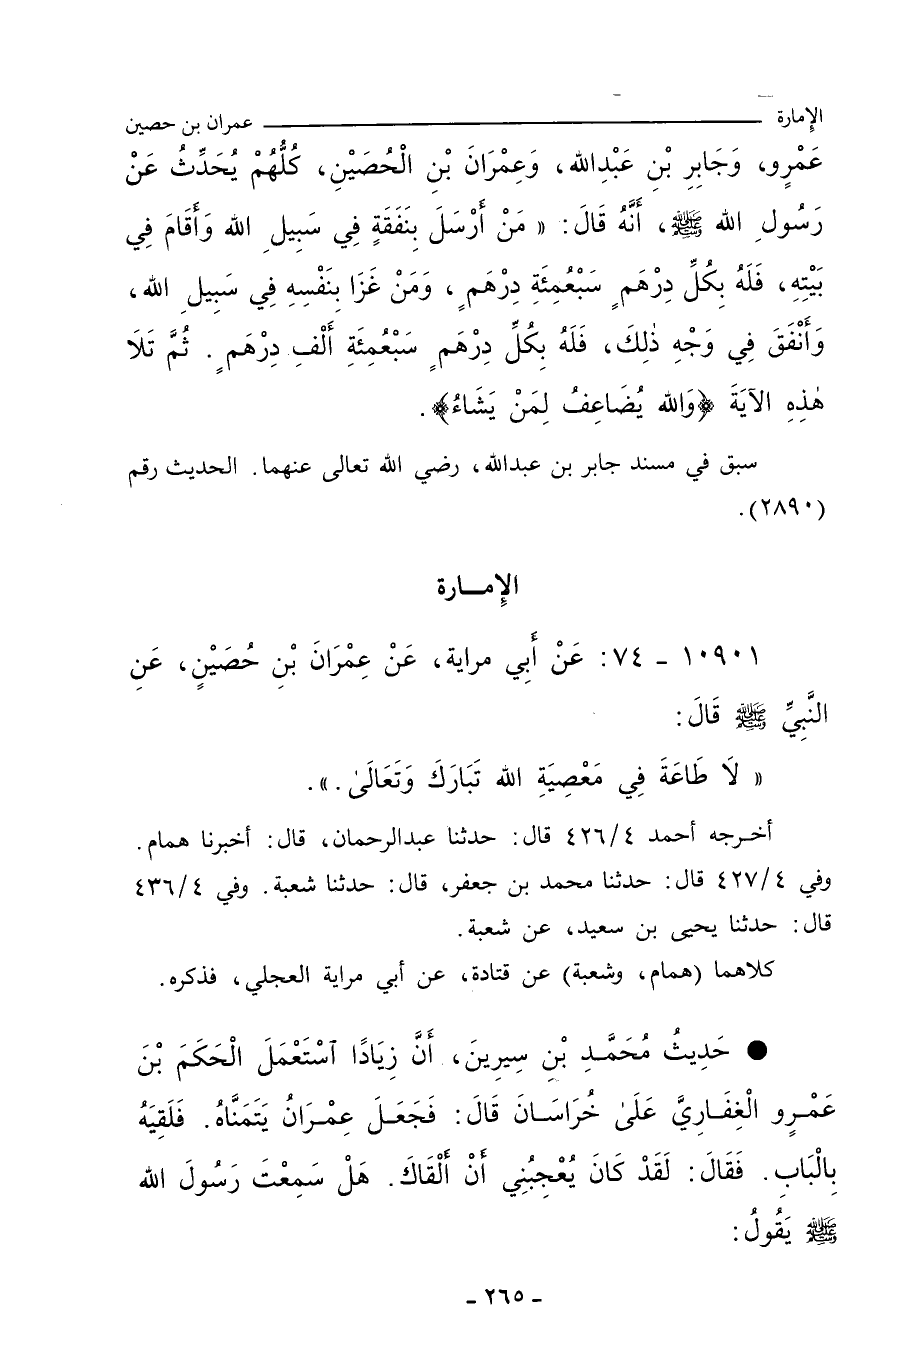 الإمارة عمران بن حصين
عَمْرٍو، وَجَابِرِ بْنِ عَبْدِالله، وَعِمْرَانَ بْنِ الْحُصَيْنِ، كُلُّهُمْ يُحَدِّثُ عَنْ
رَسُولِ الله ﷺ، أَنَّهُ قَالَ: « مَنْ أَرْسَلَ بِنَفَقَةٍ فِي سَبِيلِ الله وَأَقَامَ فِي
بَيْتِهِ، فَلَهُ بِكُلِّ دِرْهَمٍ سَبْعُمِئَةِ دِرْهَمٍ، وَمَنْ غَزَا بِنَفْسِهِ فِي سَبِيلِ الله،
وَأَنْفَقَ فِي وَجْهِ ذٰلِكَ، فَلَهُ بِكُلِّ دِرْهَمٍ سَبْعُمِئَةِ أَلْفِ دِرْهَمٍ. ثُمَّ تَلَا
هٰذِهِ الآيَةَ ﴿وَالله يُضَاعِفُ لِمَنْ يَشَاءُ﴾.
سبق في مسند جابر بن عبدالله، رضي الله تعالى عنهما. الحديث رقم
(٢٨٩٠).
الإمـــارة
١٠٩٠١ - ٧٤: عَنْ أَبِي مراية، عَنْ عِمْرَانَ بْنِ حُصَيْنٍ، عَنِ
النَّبِيِّ ﷺ قَالَ:
« لَا طَاعَةَ فِي مَعْصِيَةِ الله تَبَارَكَ وَتَعَالَىٰ.».
أخـرجه أحمد ٤٢٦/٤ قال: حدثنا عبدالرحمان، قال: أخبرنا همام.
وفي ٤٢٧/٤ قال: حدثنا محمد بن جعفر، قال: حدثنا شعبة. وفي ٤٣٦/٤
قال: حدثنا يحيى بن سعيد، عن شعبة.
كلاهما (همام، وشعبة) عن قتادة، عن أبي مراية العجلي، فذكره.
● حَدِيثُ مُحَمَّدِ بْنِ سِيرِينَ، أَنَّ زِيَادًا اسْتَعْمَلَ الْحَكَمَ بْنَ
عَمْرٍو الْغِفَارِيَّ عَلَىٰ خُرَاسَانَ قَالَ: فَجَعَلَ عِمْرَانُ يَتَمَنَّاهُ. فَلَقِيَهُ
بِالْبَابِ. فَقَالَ: لَقَدْ كَانَ يُعْجِبُنِي أَنْ أَلْقَاكَ. هَلْ سَمِعْتَ رَسُولَ الله
ﷺ يَقُولُ:
- ٢٦٥ -